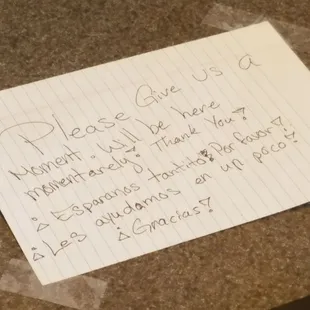 Please Give us a
Moment. Will be here
momentarely! Thank You!
¡Esparanos tantito! Por favor!
¡Les ayudamos en un poco!
¡Gracias!